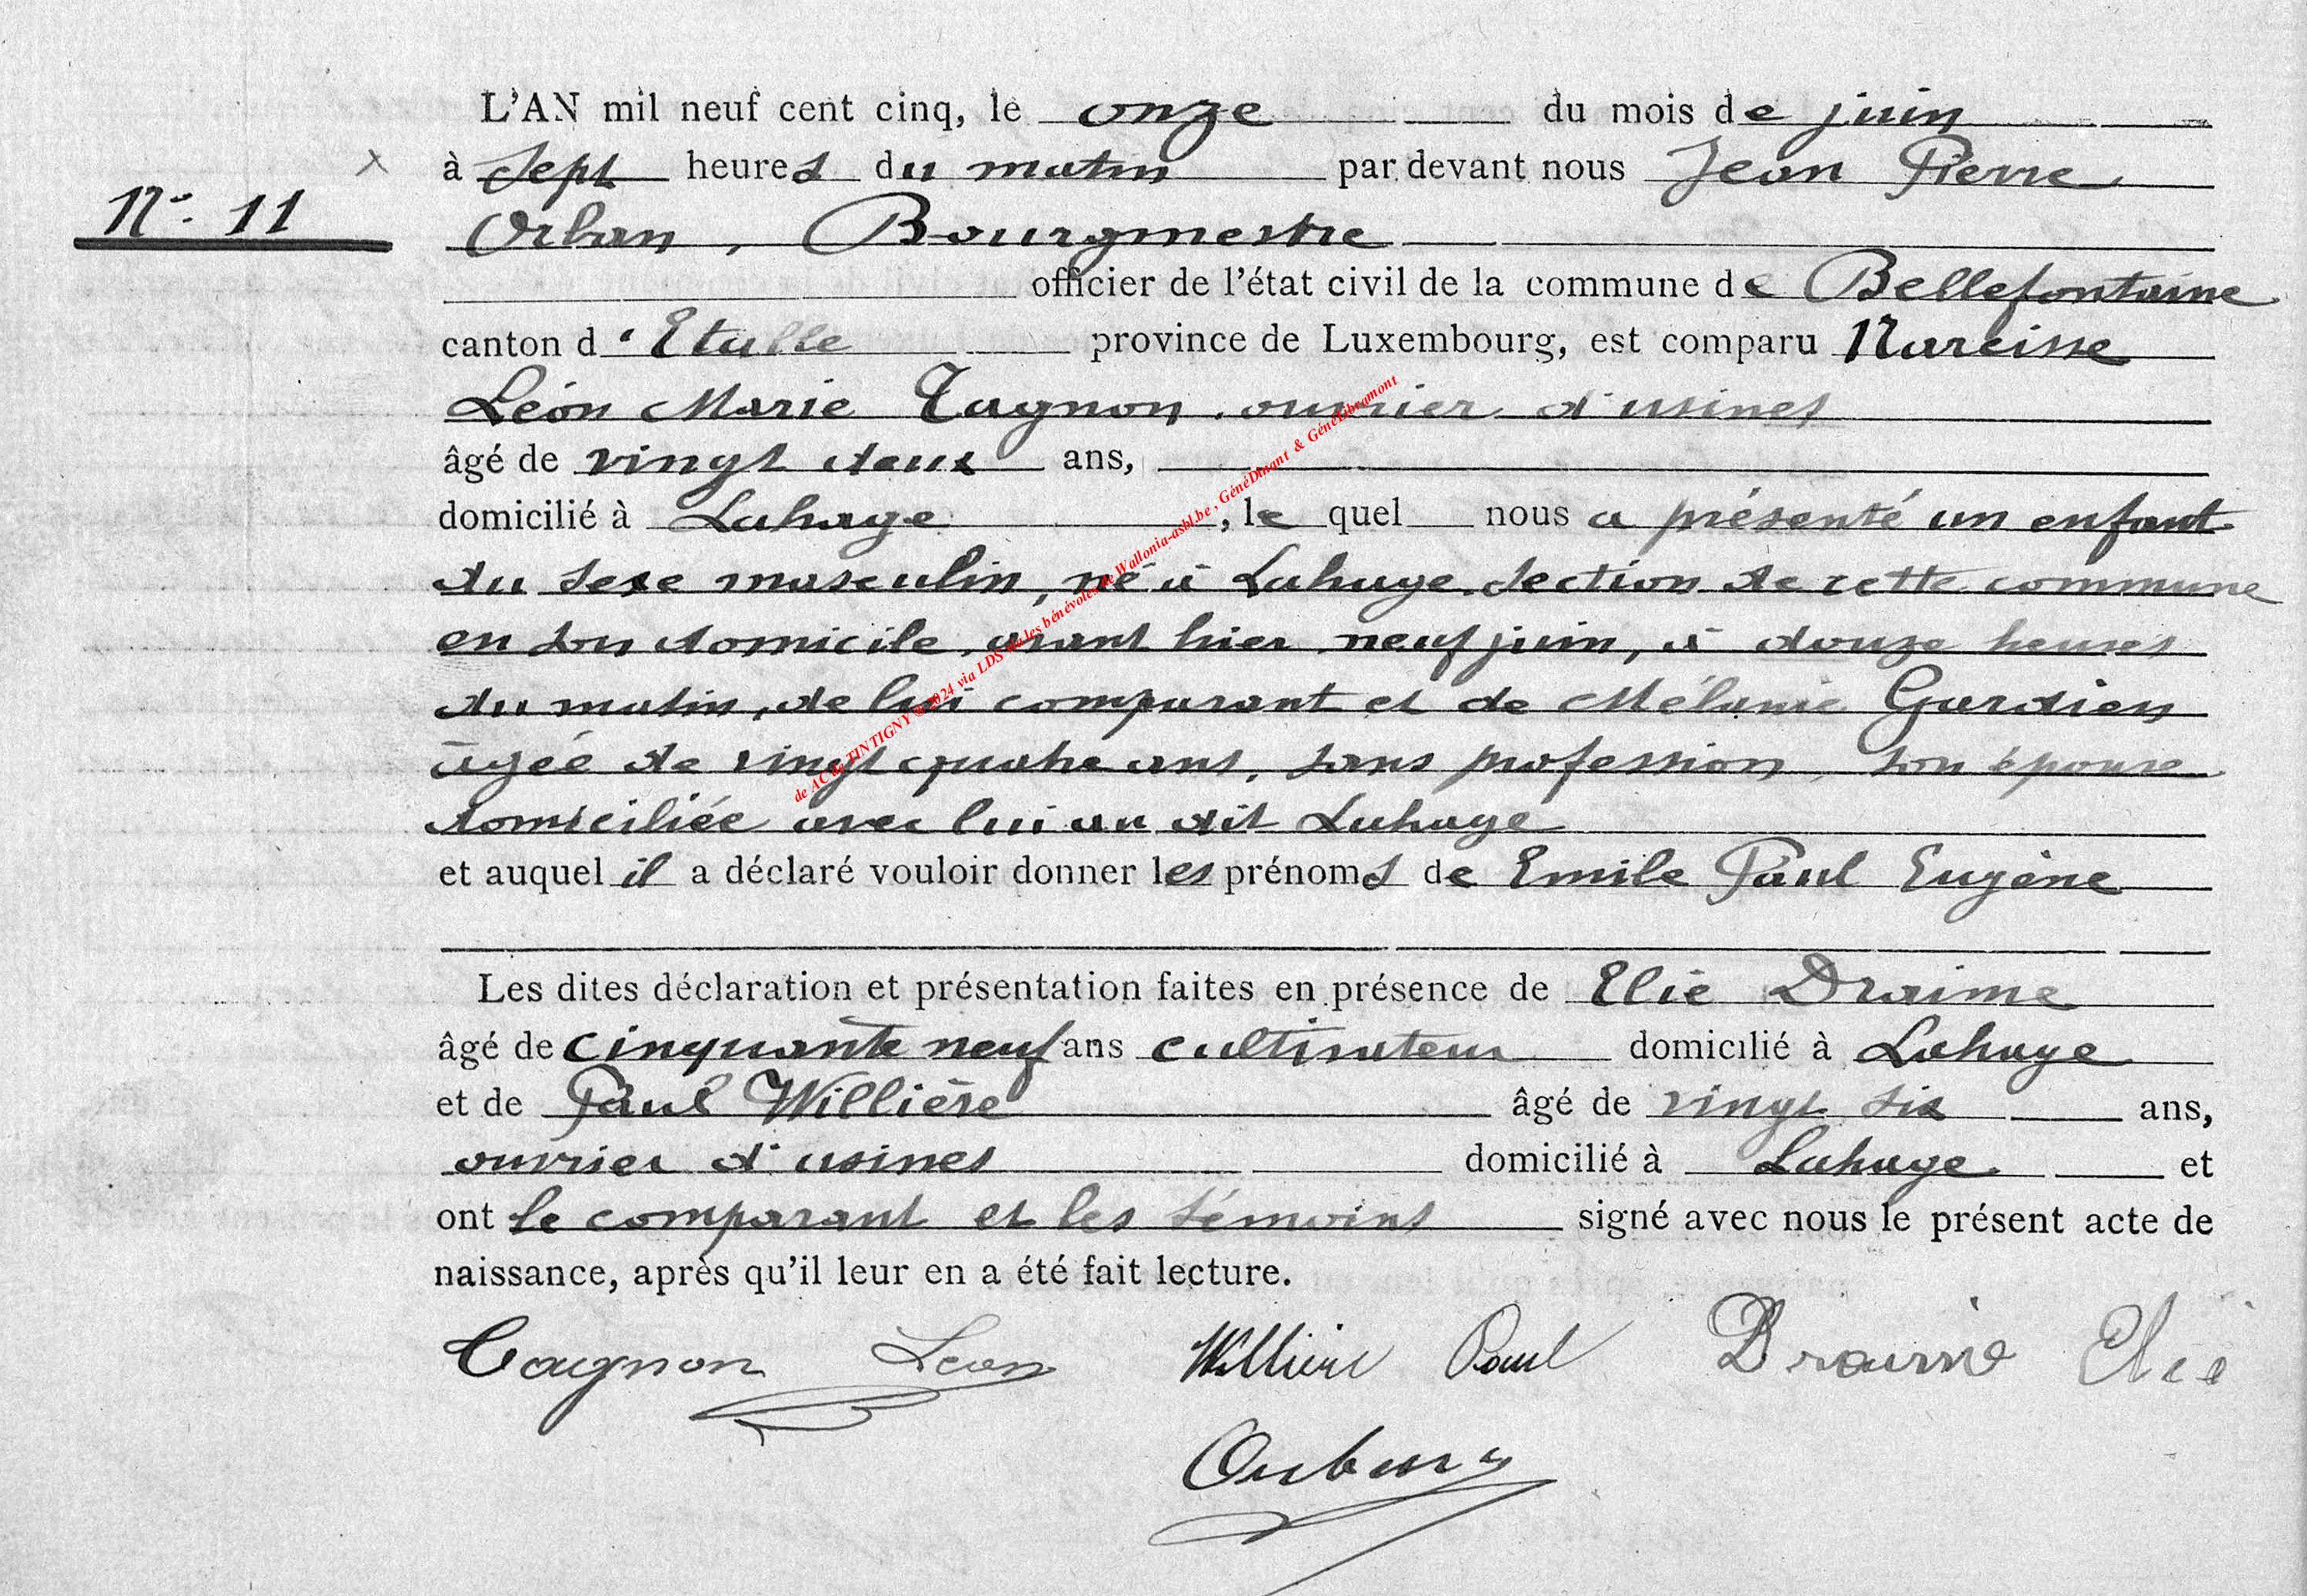 L'AN mil neuf cent cinq, le onze du mois de juin
à sept heures du matin par devant nous Jean Pierre
N°. 11
Orban, Bourgmestre
officier de l'état civil de la commune de Bellefontaine
canton d'Etalle province de Luxembourg, est comparu Narcisse
Léon Marie Tagnon, ouvrier d'usines
âgé de vingt deux ans,
domicilié à Lahage, le quel nous a présenté un enfant
du sexe masculin, né à Lahage, section de cette commune
en son domicile, avant hier neuf juin, à douze heures
du matin, de lui comparant et de Mélanie Gardien
âgée de vingt quatre ans, sans profession, son épouse
domiciliée avec lui au dit Lahage
et auquel il a déclaré vouloir donner les prénoms de Emile Paul Eugène
Les dites déclaration et présentation faites en présence de Elie Draime
âgé de cinquante neuf ans cultivateur domicilié à Lahage
et de Paul Willière âgé de vingt six ans,
ouvrier d'usines domicilié à Lahage et
ont le comparant et les témoins signé avec nous le présent acte de
naissance, après qu'il leur en a été fait lecture.
Tagnon Léon Willière Paul Draime Elie
Orban
de AC de TINTIGNY @ 2024 via LDS les bénévoles de Wallonia-asbl.be, GénéDinant & GénéLibramont